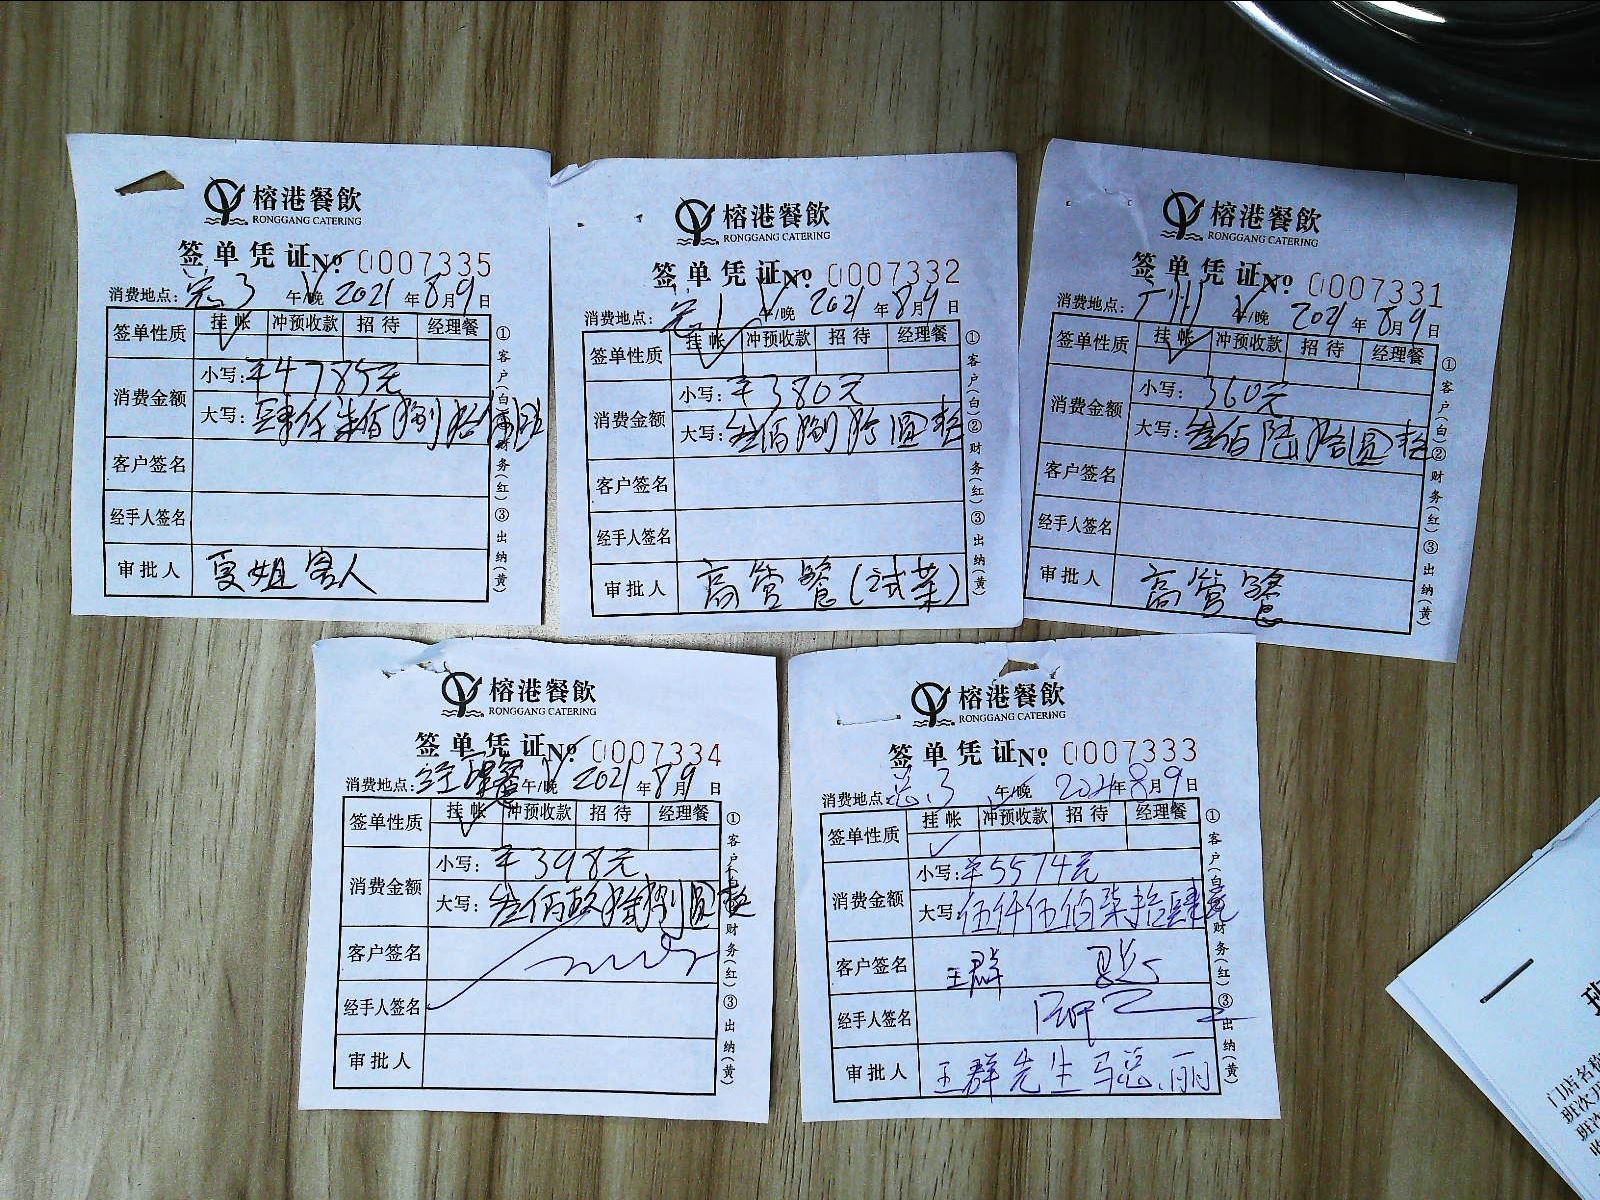 榕港餐飲
RONGGANG CATERING
签单凭证 No. 0007335
消费地点: 3 午/晚 2021年8月9日
签单性质 挂帐 冲预收款 招待 经理餐
消费金额 小写: ¥4785元
大写: 肆仟柒佰捌拾伍圆
客户签名
经手人签名
审批人 夏姐客人
①客户(白)②财务(红)③出纳(黄)
榕港餐飲
RONGGANG CATERING
签单凭证 No. 0007332
消费地点: 1 午/晚 2021年8月9日
签单性质 挂帐 冲预收款 招待 经理餐
消费金额 小写: ¥380元
大写: 叁佰捌拾圆整
客户签名
经手人签名
审批人 高管餐(试菜)
①客户(白)②财务(红)③出纳(黄)
榕港餐飲
RONGGANG CATERING
签单凭证 No. 0007331
消费地点: 广州 午/晚 2021年8月9日
签单性质 挂帐 冲预收款 招待 经理餐
消费金额 小写: 360元
大写: 叁佰陆拾圆整
客户签名
经手人签名
审批人 高管餐
①客户(白)②财务(红)③出纳(黄)
榕港餐飲
RONGGANG CATERING
签单凭证 No. 0007334
消费地点: 经理餐 午/晚 2021年8月9日
签单性质 挂帐 冲预收款 招待 经理餐
消费金额 小写: ¥398元
大写: 叁佰玖拾捌圆整
客户签名
经手人签名
审批人
①客户(白)②财务(红)③出纳(黄)
榕港餐飲
RONGGANG CATERING
签单凭证 No. 0007333
消费地点: 总3 午/晚 2021年8月9日
签单性质 挂帐 冲预收款 招待 经理餐
消费金额 小写: ¥5574元
大写: 伍仟伍佰柒拾肆元
客户签名 王群
经手人签名
审批人 王群先生马总、丽
①客户(白)②财务(红)③出纳(黄)
门店名称
班次